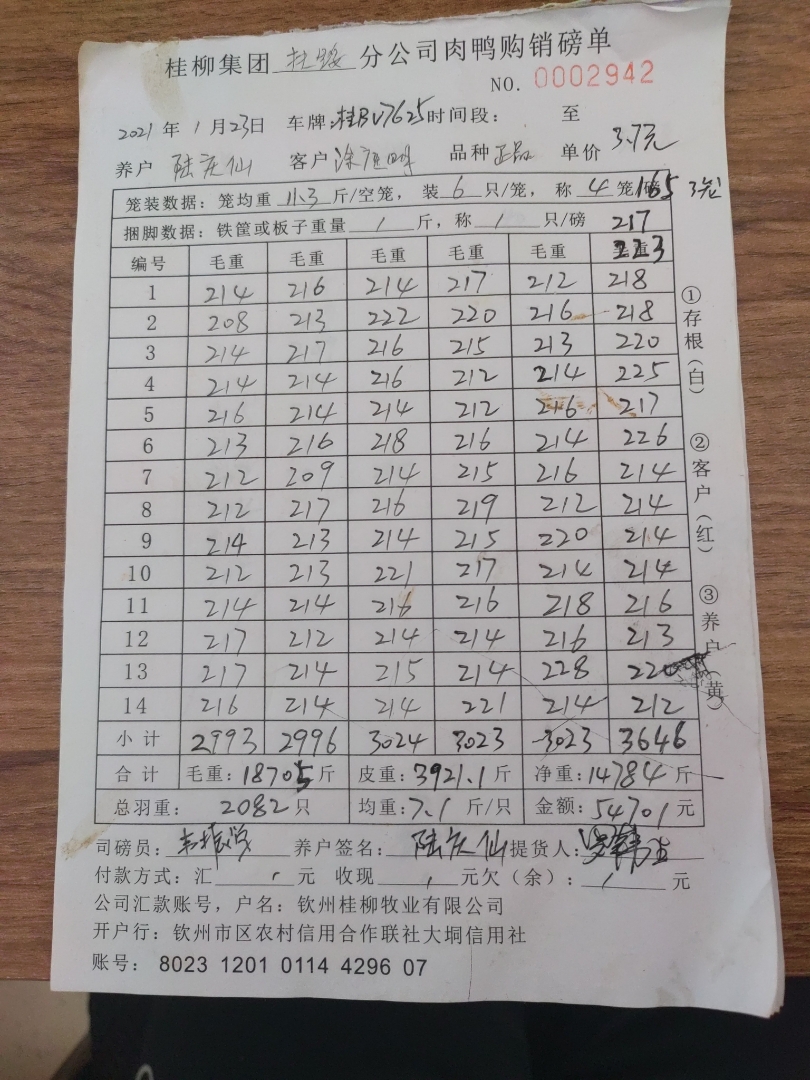 桂柳集团 分公司肉鸭购销磅单
NO. 0002942
2021年1月23日 车牌:桂BV7625时间段: 至
养户 陆庆仙 客户 品种 正品 单价 3.7元
笼装数据:笼均重 11.3 斤/空笼,装 6 只/笼,称 4 笼/磅 165
捆脚数据:铁筐或板子重量 / 斤,称 / 只/磅 217
223
编号 毛重 毛重 毛重 毛重 毛重 毛重
1 214 216 214 217 212 218
2 208 213 222 220 216 218
3 214 217 216 215 213 220
4 214 214 216 212 214 225
5 216 214 214 212 216 217
6 213 216 218 216 214 226
7 212 209 214 215 216 214
8 212 217 216 219 212 214
9 214 213 214 215 220 214
10 212 213 221 217 214 214
11 214 214 216 216 218 216
12 217 212 214 214 216 213
13 217 214 215 214 228 220
14 216 214 214 221 214 212
小计 2993 2996 3024 3023 3023 3646
合计 毛重:18705斤 皮重:3921.1斤 净重:14784斤
总羽重: 2082 只 均重:7.1 斤/只 金额:54701元
司磅员: 养户签名: 陆庆仙 提货人:
付款方式:汇 / 元 收现 / 元欠(余): / 元
公司汇款账号,户名:钦州桂柳牧业有限公司
开户行:钦州市区农村信用合作联社大垌信用社
账号: 8023 1201 0114 4296 07
①存根(白)
②客户(红)
③养户(黄)